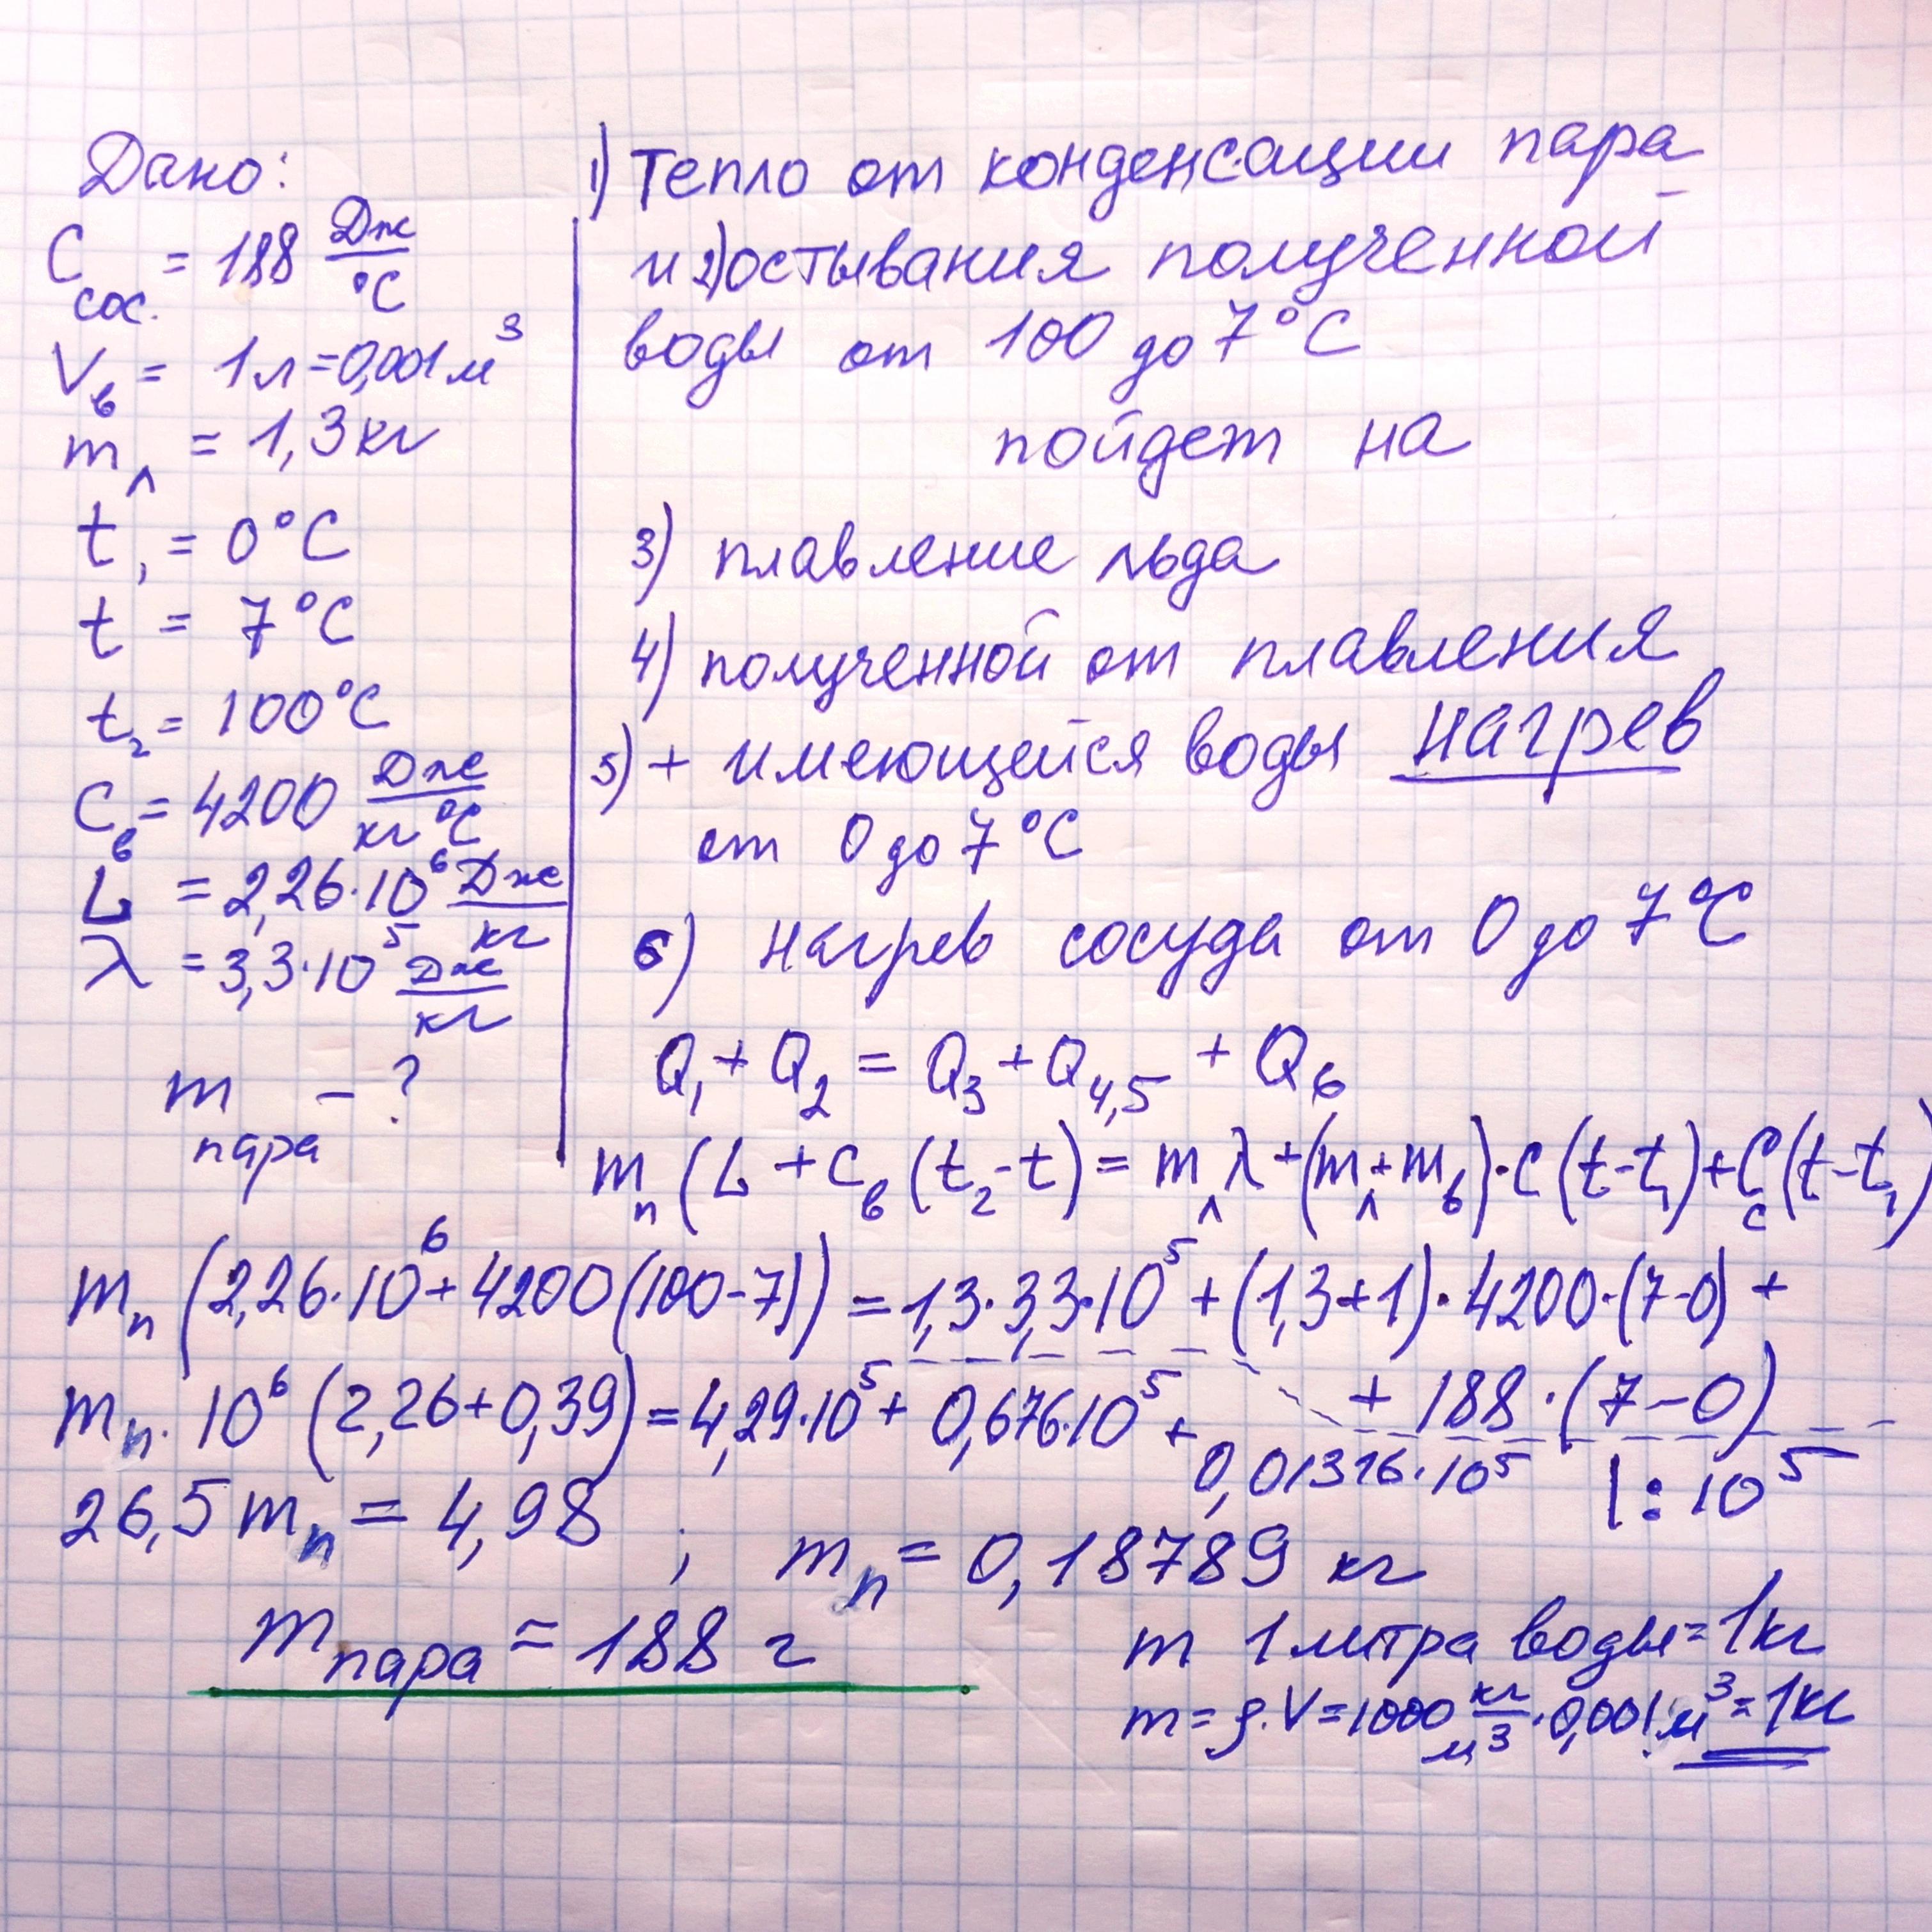 Дано:
C сос. = 188 Дж/°C
Vв = 1л = 0,001 м³
mл = 1,3 кг
t₁ = 0°C
t = 7°C
t₂ = 100°C
Cв = 4200 Дж/кг °C
L = 2,26·10⁶ Дж/кг
λ = 3,3·10⁵ Дж/кг
m пара - ?
1) Тепло от конденсации пара
и 2) остывания полученной
воды от 100 до 7°C
пойдет на
3) плавление льда
4) полученной от плавления
5) + имеющейся воды нагрев
от 0 до 7°C
6) нагрев сосуда от 0 до 7°C
Q₁ + Q₂ = Q₃ + Q₄,₅ + Q₆
mп (L + cв (t₂-t) = mл λ + (mл + mв)·c (t-t₁) + Cс (t-t₁)
mп (2,26·10⁶ + 4200 (100-7)) = 1,3·3,3·10⁵ + (1,3+1)·4200·(7-0) +
+ 188·(7-0)
mп·10⁶ (2,26+0,39) = 4,29·10⁵ + 0,676·10⁵ +
0,01316·10⁵ |: 10⁵
26,5 mп = 4,98 ; mп = 0,18789 кг
m пара ≈ 188 г
m 1 литра воды = 1кг
m = ρ·V = 1000 кг/м³ · 0,001 м³ = 1кг